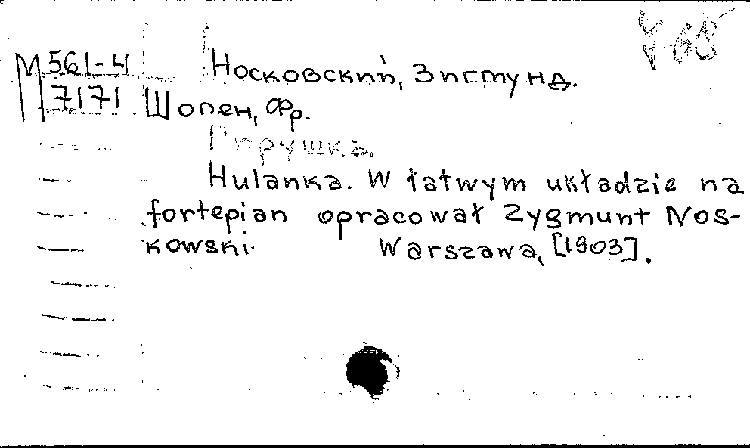 М 561-4
7171
Носковский, Зигмунд.
Шопен, Фр.
Пирушка.
Hulanka. W łatwym układzie na
fortepian opracował Zygmunt Nos-
kowski. Warszawa, [1903].